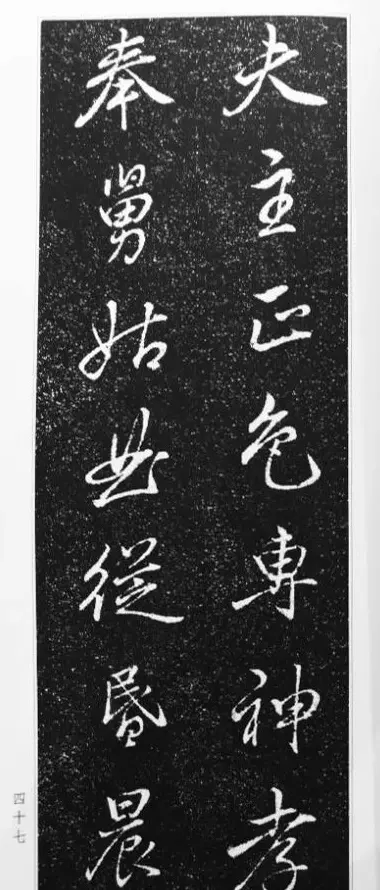 夫主正色專神孝
奉舅姑曲從昏晨
四十七